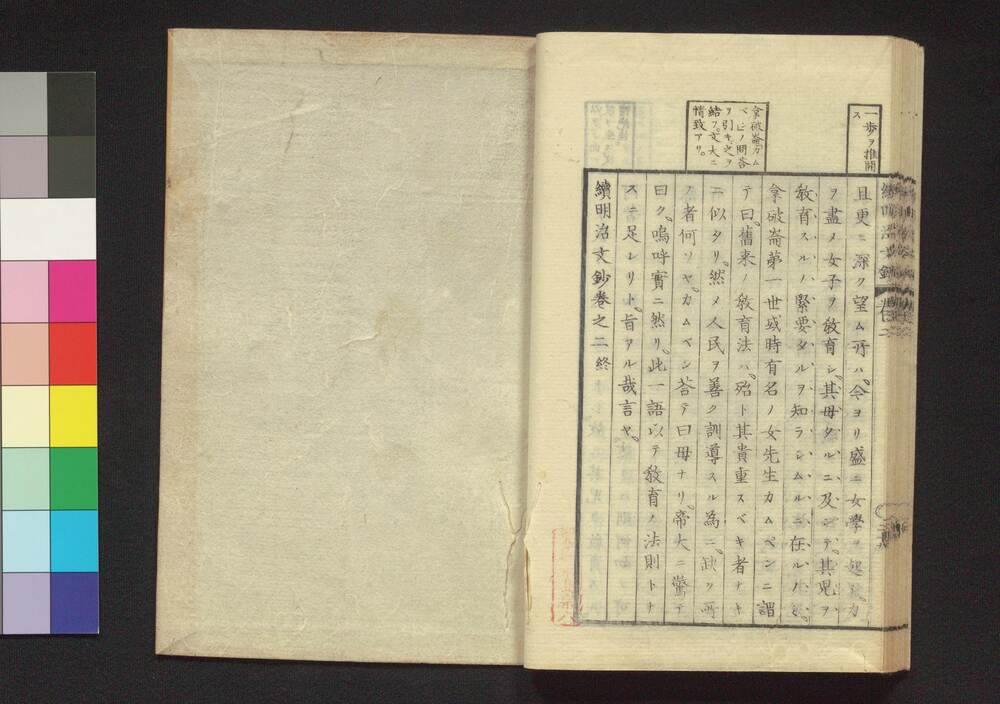 一歩ヲ推開
ス
拿破崙カム
ベンノ問答
ヲ引キ、之ヲ
結フ。文大ニ
情致アリ。
且更ニ深ク望ム所ハ。今ヨリ盛ニ女學ヲ起シ。力
ヲ盡メ女子ヲ敎育シ。其母タルニ及ンテ。其児ヲ
敎育スルノ、緊要タルヲ知ラシムルニ在ルノミ。
拿破崙第一世或時有名ノ女先生カムペンニ謂
テ曰。舊来ノ敎育法ハ。殆ト其貴重スベキ者ナキ
ニ似タリ。然メ人民ヲ善ク訓導スル為ニ。缺ク所
ノ者何ソヤ。カムペン荅テ曰母ナリ。帝大ニ驚テ
曰ク。嗚呼實ニ然リ。此一語以テ敎育ノ法則トナ
スニ足レリト。旨アル哉言ヤ。
續明治文鈔巻之二終
續明治文鈔 巻二